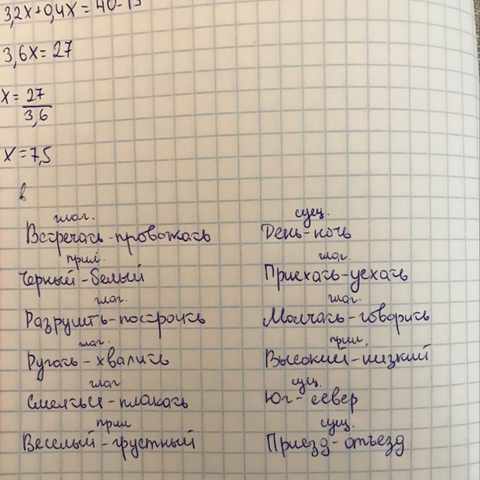 3,2x+0,4x = 40-13
3,6x = 27
x = 27/3,6
x = 7,5
в
глаг.
Встречать - провожать
прил.
Черный - белый
глаг.
Разрушить - построить
глаг.
Ругать - хвалить
глаг
Смеяться - плакать
прил
Веселый - грустный
сущ.
День - ночь
глаг.
Приехать - уехать
глаг.
Молчать - говорить
прил.
Высокий - низкий
сущ.
Юг - север
сущ.
Приезд - отъезд